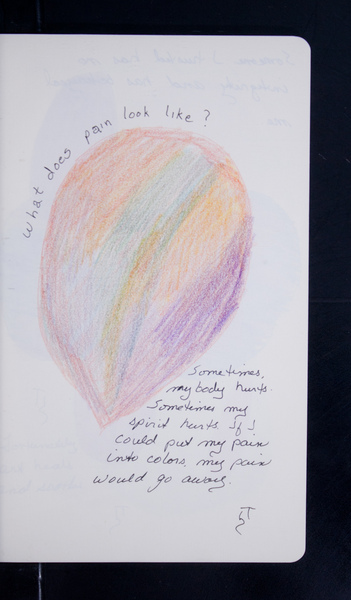 What does pain look like?
Sometimes,
my body hurts.
Sometimes my
spirit hurts If I
could put my pain
into colors, my pain
would go away.